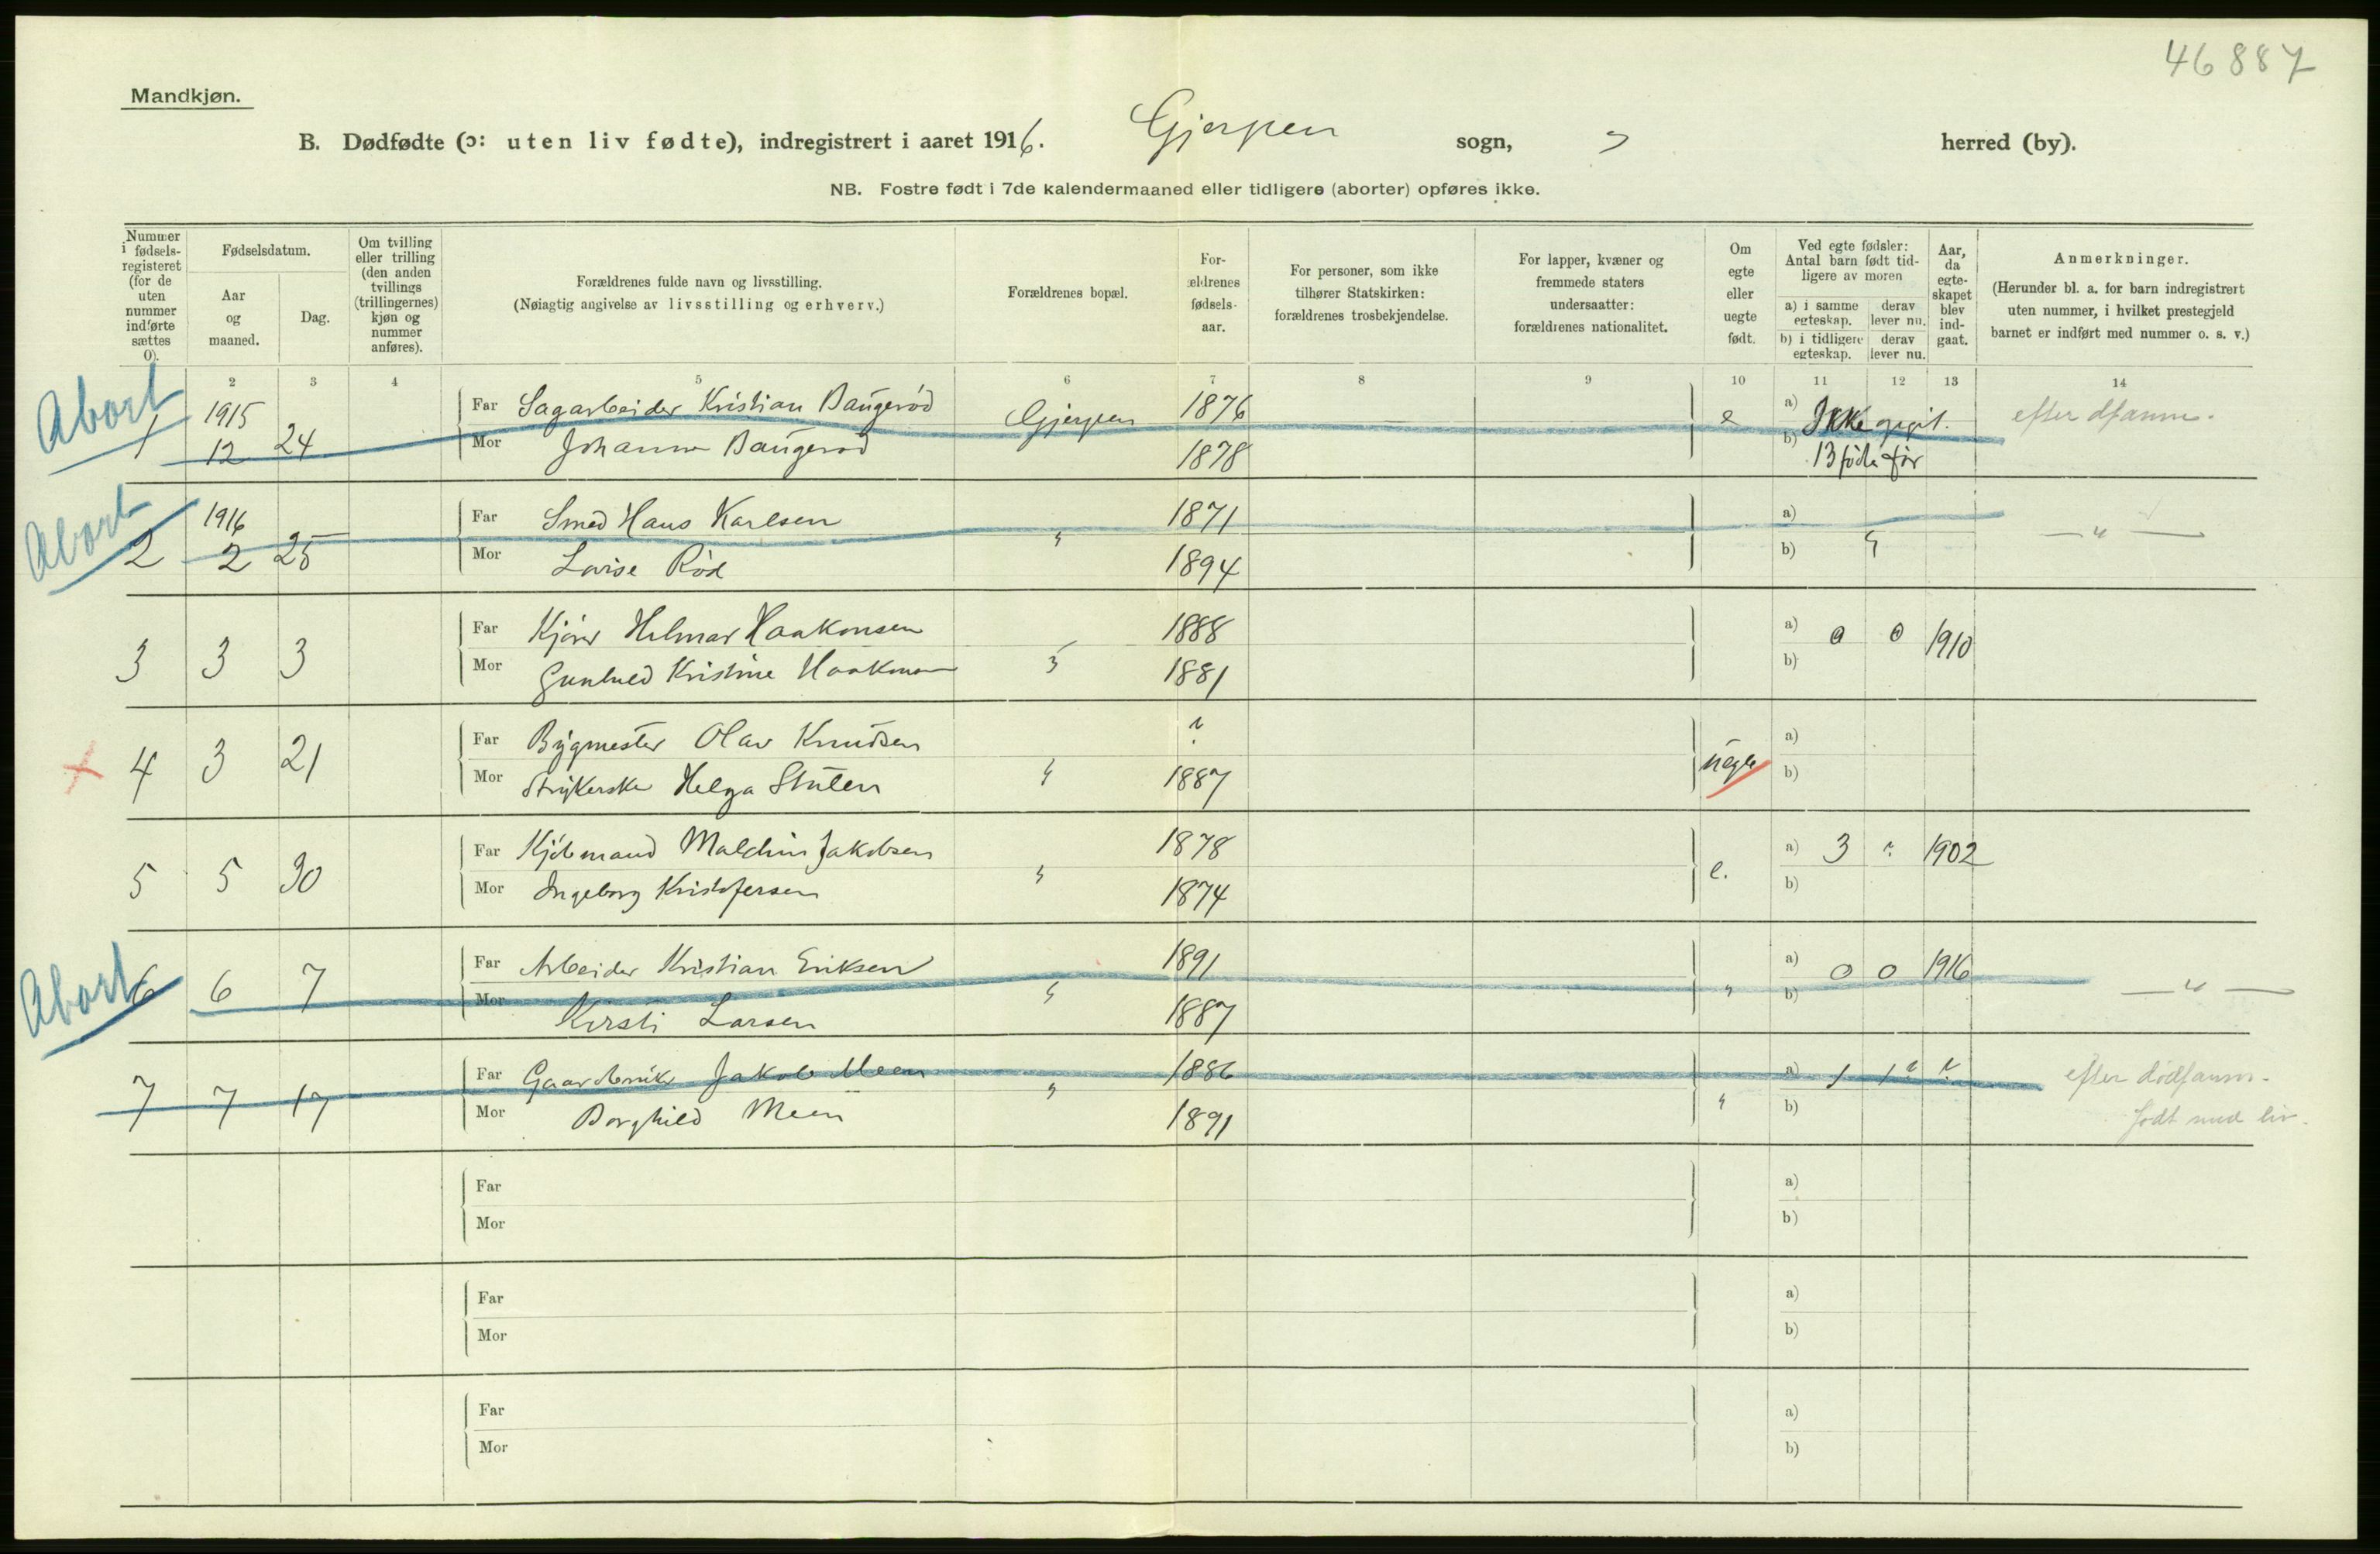 46887
Mandkjøn.
B. Dødfødte (ɔ: uten liv fødte), indregistrert i aaret 1916. Gjerpen sogn, herred (by).
NB. Fostre født i 7de kalendermaaned eller tidligere (aborter) opføres ikke.
Nummer i fødselsregisteret (for de uten nummer indførte sættes 0).
Fødselsdatum.
Aar og maaned.
Dag.
Om tvilling eller trilling (den anden tvillings (trillingernes) kjøn og nummer anføres).
Forældrenes fulde navn og livsstilling.
(Nøiagtig angivelse av livsstilling og erhverv.)
Forældrenes bopæl.
Forældrenes fødselsaar.
For personer, som ikke tilhører Statskirken: forældrenes trosbekjendelse.
For lapper, kvæner og fremmede staters undersaatter: forældrenes nationalitet.
Om egte eller uegte født.
Ved egte fødsler: Antal barn født tidligere av moren
a) i samme egteskap. derav lever nu.
b) i tidligere egteskap. derav lever nu.
Aar, da egteskapet blev indgaat.
Anmerkninger.
(Herunder bl. a. for barn indregistrert uten nummer, i hvilket prestegjeld barnet er indført med nummer o. s. v.)
2 3 4 5 6 7 8 9 10 11 12 13 14
Abort
1 1915 12 24 Far Sagarbeider Kristian Baugerød Gjerpen 1876 e a) Ikke opgit. efter
Mor Johanne Baugerød 1878 b) 13 føde før
Abort
2 1916 2 25 Far Smed Hans Karlsen " 1871 a) — " —
Mor Lovise Rød 1894 b) "
3 3 3 Far Kjører Hilmar Haakonsen " 1888 a) 0 0 1910
Mor Gunhild Kristine 1881 b)
4 3 21 Far Bygmester Olav Knudsen " ? uegte a)
Mor Strykerske Helga 1887 b)
5 5 30 Far Kjøbmand Jakobsen " 1878 e. a) 3 ? 1902
Mor Ingeborg Kristofersen 1874 b)
Abort
6 6 7 Far Arbeider Kristian Eriksen " 1891 " a) 0 0 1916 — " —
Mor Kirsti Larsen 1887 b)
7 7 17 Far Gaardbruker Jakob Meen " 1886 " a) 1 1 ? ? efter dødsanm.
Mor Borghild Meen 1891 b) født med liv.
Far a)
Mor b)
Far a)
Mor b)
Far a)
Mor b)